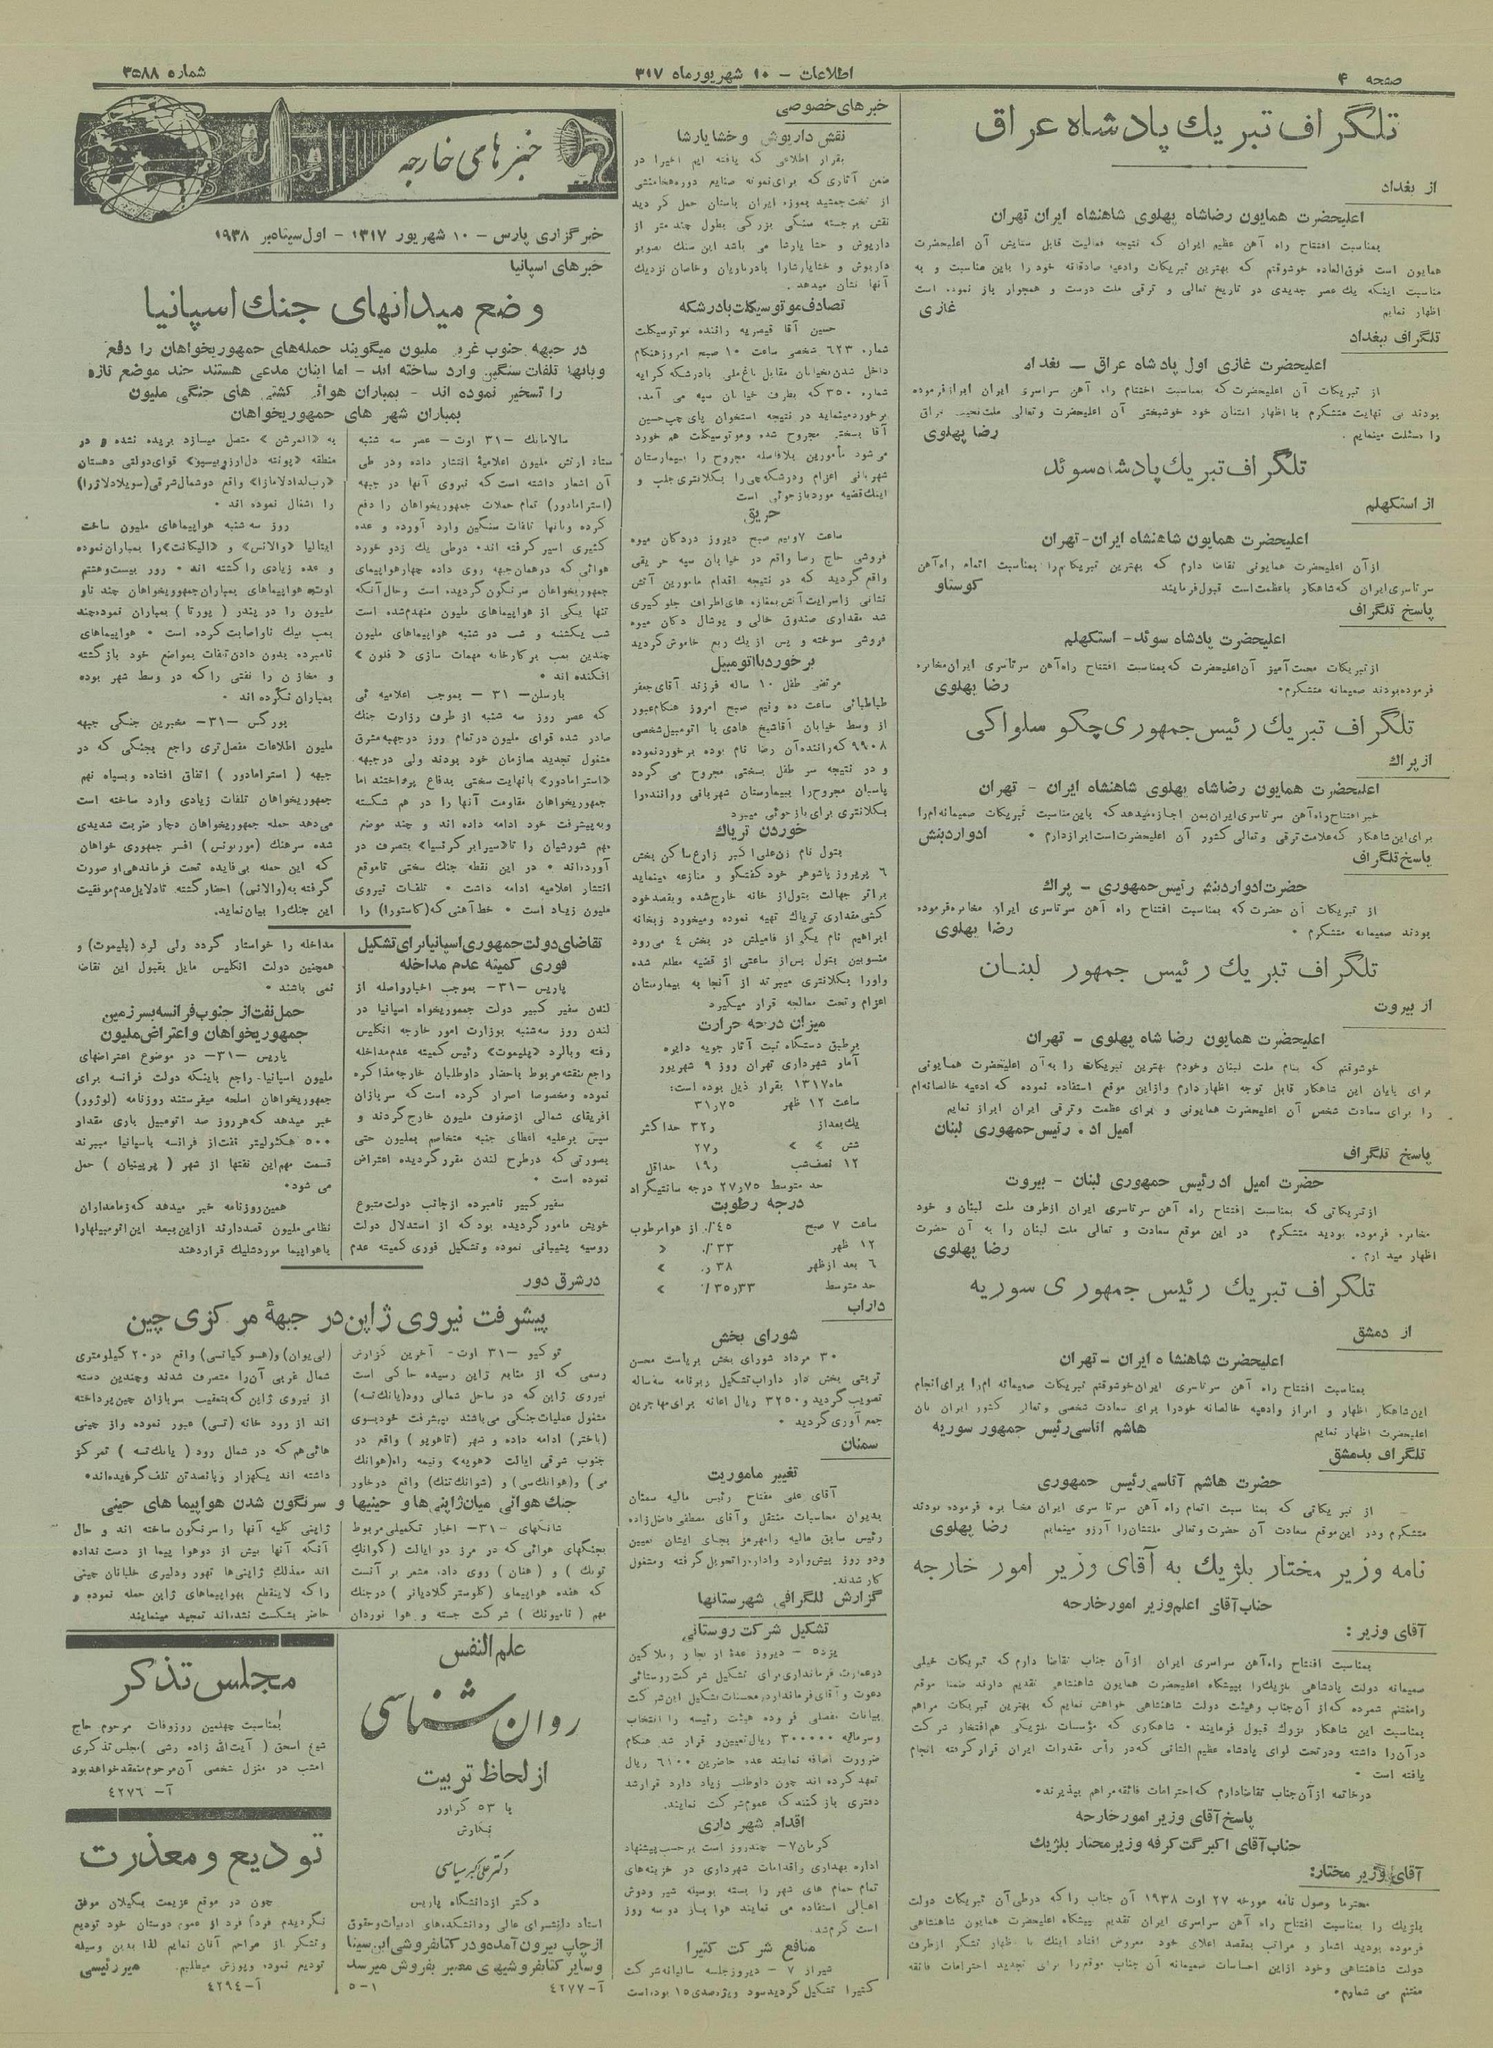 صفحه ۴
اطلاعات - ۱۰ شهریور ماه ۳۱۷
شماره ۳۵۸۸
تلگراف تبریك پادشاه عراق
از بغداد
اعلیحضرت همایون رضاشاه پهلوی شاهنشاه ایران تهران
بمناسبت افتتاح راه آهن عظیم ایران که نتیجه فعالیت قابل ستایش آن اعلیحضرت
همایون است فوق‌العاده خوشوقتم که بهترین تبریکات وادعیه صادقانه خود را باین مناسبت و به
مناسبت اینکه یك عصر جدیدی در تاریخ تعالی و ترقی ملت دوست و همجوار باز نموده است
اظهار نمایم
غازی
تلگراف ببغداد
اعلیحضرت غازی اول پادشاه عراق - بغداد
از تبریکات آن اعلیحضرت که بمناسبت اختتام راه آهن سراسری ایران ابراز فرموده
بودند بی نهایت متشکرم با اظهار امتنان خود خوشبختی آن اعلیحضرت وتعالی ملت نجیب عراق
را مسئلت مینمایم .
رضا پهلوی
تلگراف تبریك پادشاه سوئد
از استکهلم
اعلیحضرت همایون شاهنشاه ایران - تهران
از آن اعلیحضرت همایونی تقاضا دارم که بهترین تبریکاتم را بمناسبت اتمام راه آهن
سرتاسری ایران که شاهکار باعظمت است قبول فرمایند
گوستاو
پاسخ تلگراف
اعلیحضرت پادشاه سوئد - استکهلم
از تبریکات محبت آمیز آن اعلیحضرت که بمناسبت افتتاح راه آهن سرتاسری ایران مخابره
فرموده بودند صمیمانه متشکرم.
رضا پهلوی
تلگراف تبریك رئیس جمهوری چکوسلواکی
از پراك
اعلیحضرت همایون رضاشاه پهلوی شاهنشاه ایران - تهران
خبر افتتاح راه آهن سرتاسری ایران بمن اجازه میدهد که باین مناسبت تبریکات صمیمانه ام را
برای این شاهکار که علامت ترقی وتعالی کشور آن اعلیحضرت است ابراز دارم .
ادوارد بنش
پاسخ تلگراف
حضرت ادوارد بنش رئیس جمهوری - پراك
از تبریکات آن حضرت که بمناسبت افتتاح راه آهن سرتاسری ایران مخابره فرموده
بودند صمیمانه متشکرم .
رضا پهلوی
تلگراف تبریك رئیس جمهور لبنان
از بیروت
اعلیحضرت همایون رضا شاه پهلوی - تهران
خوشوقتم که بنام ملت لبنان وخودم بهترین تبریکات را به آن اعلیحضرت همایونی
برای پایان این شاهکار قابل توجه اظهار دارم وازاین موقع استفاده نموده که ادعیه خالصانه‌ام
را برای سعادت شخص آن اعلیحضرت همایونی و برای عظمت وترقی ایران ابراز نمایم
امیل اده رئیس جمهوری لبنان
پاسخ تلگراف
حضرت امیل اده رئیس جمهوری لبنان - بیروت
از تبریکاتی که بمناسبت افتتاح راه آهن سرتاسری ایران ازطرف ملت لبنان و خود
مخابره فرموده بودید متشکرم در این موقع سعادت و تعالی ملت لبنان را به آن حضرت
اظهار میدارم .
رضا پهلوی
تلگراف تبریك رئیس جمهوری سوریه
از دمشق
اعلیحضرت شاهنشاه ایران - تهران
بمناسبت افتتاح راه آهن سرتاسری ایران خوشوقتم تبریکات صمیمانه ام را برای انجام
این شاهکار اظهار و ابراز وادعیه خالصانه خود را برای سعادت شخصی وتعالی کشور ایران بآن
اعلیحضرت اظهار نمایم
هاشم اتاسی رئیس جمهور سوریه
تلگراف بدمشق
حضرت هاشم آتاسی رئیس جمهوری
از تبریکاتی که بمناسبت اتمام راه آهن سرتاسری ایران مخابره فرموده بودند
متشکرم ودر این موقع سعادت آن حضرت وتعالی ملتشان را آرزو مینمایم
رضا پهلوی
نامه وزیر مختار بلژیك به آقای وزیر امور خارجه
جناب آقای اعلم وزیر امور خارجه
آقای وزیر :
بمناسبت افتتاح راه آهن سراسری ایران از آن جناب تقاضا دارم که تبریکات خیلی
صمیمانه دولت پادشاهی بلژیك را بپیشگاه اعلیحضرت همایون شاهنشاهی تقدیم دارند ضمنا موقع
را مغتنم شمرده که از آن جناب وهیئت دولت شاهنشاهی خواهش نمایم که بهترین تبریکات مراهم
بمناسبت این شاهکار بزرك قبول فرمایند . شاهکاری که مؤسسات بلژیکی هم افتخار شرکت
در آن را داشته ودرتحت لوای پادشاه عظیم الشانی که در رأس مقدرات ایران قرار گرفته انجام
یافته است .
در خاتمه از آن جناب تقاضا دارم که احترامات فائقه مراهم بپذیرند.
پاسخ آقای وزیر امور خارجه
جناب آقای اکبرگت کرفه وزیر مختار بلژیك
آقای وزیر مختار:
محترما وصول نامه مورخه ۲۷ اوت ۱۹۳۸ آن جناب را که درطی آن تبریکات دولت
بلژیك را بمناسبت افتتاح راه آهن سراسری ایران تقدیم پیشگاه اعلیحضرت همایون شاهنشاهی
فرموده بودید اشعار و مراتب بمقصد اعلای خود معروض افتاد اینك با اظهار تشکر ازطرف
دولت شاهنشاهی وخود ازاین احساسات صمیمانه آن جناب موقع را برای تجدید احترامات فائقه
مغتنم می شمارم .
خبرهای خصوصی
نقش داریوش وخشایارشا
بقرار اطلاعی که یافته ایم اخیرا در
ضمن آثاری که برای نمونه صنایع دوره هخامنشی
از تخت جمشید بموزه ایران باستان حمل گردید
نقش برجسته سنگی بزرگی بطول چند متر از
داریوش و خشایارشا می باشد این سنك تصویر
داریوش و خشایارشا را بادرباریان وخاصان نزدیك
آنها نشان میدهد.
تصادف موتوسیکلت بادرشکه
حسین آقا قیصریه راننده موتوسیکلت
شماره ۶۲۳ شخصی ساعت ۱۰ صبح امروز هنگام
داخل شدن بخیابان مقابل باغ ملی بادرشکه کرایه
شماره ۳۵۰ که بطرف خیابان سپه می آمد.
برخورد مینماید در نتیجه استخوان پای چپ حسین
آقا بسختی مجروح شده وموتوسیکلت هم خورد
می شود مأمورین بلافاصله مجروح را ببیمارستان
شهربانی اعزام ودرشکه چی را بکلانتری جلب و
اینك قضیه مورد بازجوئی است
حریق
ساعت ۷ ونیم صبح دیروز دردکان میوه
فروشی حاج رضا واقع در خیابان سپه حریقی
واقع گردید که در نتیجه اقدام مامورین آتش
نشانی ازسرایت آتش بمغازه های اطراف جلوگیری
شد مقداری صندوق خالی و پوشال دکان میوه
فروشی سوخته و پس از یك ربع خاموش گردید
برخورد با اتومبیل
مرتضی طفل ۱۰ ساله فرزند آقای جعفر
طباطبائی ساعت ده ونیم صبح امروز هنگام عبور
از وسط خیابان آقاشیخ هادی با اتومبیل شخصی
۹۹۰۸ که راننده آن رضا نام بوده برخورد نموده
و در نتیجه سر طفل بسختی مجروح می گردد
پاسبان مجروح را ببیمارستان شهربانی وراننده را
بکلانتری برای بازجوئی میبرد
خوردن تریاك
بتول نام زن علی اکبر زارع ساکن بخش
۶ پریروز باشوهر خود گفتگو و منازعه مینماید
براثر جهالت بتول از خانه خارج شده وبقصد خود
کشی مقداری تریاك تهیه نموده ومیخورد وبخانه
ابراهیم نام یکی از فامیلش در بخش ٤ می رود
منسوبین بتول پس از ساعتی از قضیه مطلع شده
واورا بکلانتری میبرند از آنجا به بیمارستان
اعزام وتحت معالجه قرار میگیرد
میزان درجه حرارت
برطبق دستگاه ثبت آثار جویه دایره
آمار شهرداری تهران روز ۹ شهریور
ماه ۱۳۱۷ بقرار ذیل بوده است:
ساعت ۱۲ ظهر ۳۱٫۷۵
یك بعداز ۳۲٫ حداکثر
شش » » ۲۷٫
۱۲ نصف شب ۱۹٫ حداقل
حد متوسط ۲۷٫۷۵ درجه سانتیگراد
درجه رطوبت
ساعت ۷ صبح ۴۵٪ از هوا مرطوب
۱۲ ظهر ۳۳٪ «
۶ بعد از ظهر ۳۸٪ »
حد متوسط ۳۵٫۳۳٪ »
داراب
شورای بخش
۳۰ مرداد شورای بخش بریاست محسن
تربتی بخش دار داراب تشکیل و برنامه سه ساله
تصویب گردید و ۳۲۵۰ ریال اعانه برای مهاجرین
جمع آوری گردید .
سمنان
تغییر ماموریت
آقای علی مفتاح رئیس مالیه سمنان
بدیوان محاسبات منتقل وآقای مصطفی فاضل زاده
رئیس سابق مالیه رامهرمز بجای ایشان تعیین
ودو روز پیش وارد واداره را تحویل گرفته ومشغول
کار شدند.
گزارش تلگرافی شهرستانها
تشکیل شرکت روستائی
یزد ۵ - دیروز عدهٔ از تجار و ملاکین
درعمارت فرمانداری برای تشکیل شرکت روستائی
دعوت و آقای فرماندار در محسنات تشکیل این شرکت
بیانات مفصلی فرموده هیئت رئیسه را انتخاب
وسرمایه ۳۰۰۰۰۰ ریال تعیین و قرار شد هنگام
ضرورت اضافه نمایند عده حاضرین ۶۱۰۰ ریال
تعهد کرده اند چون داوطلب زیاد دارد قرار شد
دفتری باز کنند که عموم شرکت نمایند.
اقدام شهرداری
کرمان ۷ - چند روز است برحسب پیشنهاد
اداره بهداری واقدامات شهرداری در خزینه‌های
تمام حمام های شهر را بسته بوسیله شیر ودوش
اهالی استفاده می نمایند هوا باز دو سه روز
است گرم شده
منافع شرکت کتیرا
شیراز ۷ - دیروز جلسه سالیانه شرکت
کتیرا تشکیل گردید سود ویژه صدی ۱۵ بوده است
خبرهای خارجه
خبرگزاری پارس - ۱۰ شهریور ۱۳۱۷ - اول سپتامبر ۱۹۳۸
خبرهای اسپانیا
وضع میدانهای جنك اسپانیا
در جبهه جنوب غربی ملیون میگویند حمله‌های جمهوریخواهان را دفع
وبآنها تلفات سنگین وارد ساخته اند - اما اینان مدعی هستند چند موضع تازه
را تسخیر نموده اند - بمباران هوائی کشتی های جنگی ملیون
بمباران شهر های جمهوریخواهان
سالامانك - ۳۱ اوت - عصر سه شنبه
ستاد ارتش ملیون اعلامیهٔ انتشار داده ودر طی
آن اشعار داشته است که نیروی آنها در جبهه
(استرامادور) تمام حملات جمهوریخواهان را دفع
کرده وبآنها تلفات سنگین وارد آورده و عده
کثیری اسیر گرفته اند. درطی یك زدو خورد
هوائی که درهمان جبهه روی داده چهار هواپیمای
جمهوریخواهان سرنگون گردیده است وحال آنکه
تنها یکی از هواپیماهای ملیون منهدم شده است
شب یکشنبه و شب دو شنبه هواپیماهای ملیون
چندین بمب برکارخانه مهمات سازی « فلون »
افکنده اند .
بارسلن - ۳۱ - بموجب اعلامیه ئی
که عصر روز سه شنبه از طرف وزارت جنك
صادر شده قوای ملیون درتمام روز درجبهه مشرق
مشغول تجدید سازمان خود بودند ولی درجبهه
«استرامادور» بانهایت سختی بدفاع پرداختند اما
جمهوریخواهان مقاومت آنها را در هم شکسته
وبه پیشرفت خود ادامه داده اند و چند موضع
مهم شورشیان را تا «سیرابرگرسیا» بتصرف در
آورده اند . در این نقطه جنك سختی تاموقع
انتشار اعلامیه ادامه داشت . تلفات نیروی
ملیون زیاد است . خط آهنی که (کاستورا) را
به «المرشن» متصل میسازد بریده شده و در
منطقه «پونته دل ارزوبیسپو» قوای دولتی دهستان
را اشغال نموده اند .
روز سه شنبه هواپیماهای ملیون ساخت
ایتالیا «والانس» و «الیکانت» را بمباران نموده
و عده زیادی را کشته اند . روز بیست وهشتم
اوت هواپیماهای بمباران جمهوریخواهان چند ناو
ملیون را در بندر ( پورتا ) بمباران نموده چند
بمب بیك ناو اصابت کرده است . هواپیماهای
نامبرده بدون دادن تلفات بمواضع خود بازگشته
و مخازن را نفتی را که در وسط شهر بوده
بمباران نکرده اند .
بورگس - ۳۱ - مخبرین جنگی جبهه
ملیون اطلاعات مفصل تری راجع بجنگی که در
جبهه ( استرامادور ) اتفاق افتاده وبسپاه نهم
جمهوریخواهان تلفات زیادی وارد ساخته است
می‌دهد حمله جمهوریخواهان دچار ضربت شدیدی
شده سرهنك (موربونس) افسر جمهوری خواهان
که این حمله بی فایده تحت فرماندهی او صورت
گرفته به (والانس) احضار گشته تا دلایل عدم موفقیت
این جنك را بیان نماید.
تقاضای دولت جمهوری اسپانیا برای تشکیل
فوری کمیته عدم مداخله
پاریس - ۳۱ - بموجب اخبار واصله از
لندن سفیر کبیر دولت جمهوریخواه اسپانیا در
لندن روز سه شنبه بوزارت امور خارجه انگلیس
رفته وبالرد «پلیموت» رئیس کمیته عدم مداخله
راجع بنقشه مربوط باحضار داوطلبان خارجه مذاکره
نموده ومخصوصا اصرار کرده است که سربازان
افریقای شمالی ازصفوف ملیون خارج گردند و
سپس برعلیه اعطای جنبه متخاصم بملیون حتی
بصورتی که درطرح لندن مقرر گردیده اعتراض
نموده است .
سفیر کبیر نامبرده ازجانب دولت متبوع
خویش مامور گردیده بود که از استدلال دولت
روسیه پشتیبانی نموده وتشکیل فوری کمیته عدم
مداخله را خواستار گردد ولی لرد (پلیموت) و
همچنین دولت انگلیس مایل بقبول این تقاضا
نمی باشند .
حمل نفت از جنوب فرانسه بسرزمین
جمهوریخواهان واعتراض ملیون
پاریس - ۳۱ - در موضوع اعتراضهای
ملیون اسپانیا - راجع باینکه دولت فرانسه برای
جمهوریخواهان اسلحه میفرستند روزنامه (لوژور)
خبر میدهد که هر روز صد اتومبیل باری مقدار
۵۰۰ هکتولیتر نفت از فرانسه باسپانیا میبرند
قسمت مهم این نفتها از شهر ( پرپینیان ) حمل
می شود .
همین روزنامه خبر میدهد که زمامداران
نظامی ملیون قصد دارند ازاین ببعد این اتومبیلها را
باهواپیما مورد شلیك قرار دهند
در شرق دور
پیشرفت نیروی ژاپن در جبههٔ مرکزی چین
توکیو - ۳۱ اوت - آخرین گزارش
رسمی که از منابع ژاپن رسیده حاکی است
نیروی ژاپن که در ساحل شمالی رود (یانك تسه)
مشغول عملیات جنگی می‌باشند بپیشرفت خود بسوی
(باختر) ادامه داده و شهر (تاهوپو) واقع در
جنوب شرقی ایالت «هوپه» ونیمه راه (هوانك
می) و(هوانگسی) و (شوانك‌تنك) واقع درخاور
(لی‌یوان) و(هسوکیانسی) واقع در ۲۰ کیلومتری
شمال غربی آن را متصرف شدند وچندین دسته
از نیروی ژاپن که بتعقیب سربازان چین پرداخته
اند از رود خانه (تسی) عبور نموده واز چینی
هائی هم که در شمال رود ( یانك تسه ) تمرکز
داشته اند یکهزار وپانصد تن تلف گردیده اند.
جنك هوائی میان ژاپنی ها و چینیها و سرنگون شدن هواپیما های چینی
شانگهای - ۳۱ - اخبار تکمیلی مربوط
بجنگهای هوائی که در مرز دو ایالت ( کوانك
تونك ) و (هنان ) روی داد، مشعر بر آنست
که هفده هواپیمای (کلوستر گلادیاتر ) درجنك
مهم ( نامیونك ) شرکت جسته و هوا نوردان
ژاپنی کلیه آنها را سرنگون ساخته اند و حال
آنکه آنها بیش از دو هوا پیما از دست نداده
اند معذلك ژاپنی‌ها تهور ودلیری خلبانان چینی
را که لاینقطع بهواپیماهای ژاپن حمله نموده و
حاضر بشکست نشده‌اند تمجید مینمایند
علم النفس
روان شناسی
از لحاظ تربیت
با ۵۳ گراور
نگارش
دکتر علی اکبر سیاسی
دکتر از دانشگاه پاریس
استاد دانشسرای عالی ودانشکده‌های ادبیات وحقوق
از چاپ بیرون آمده و در کتابفروشی ابن سینا
وسایر کتابفروشیهای معتبر بفروش میرسد
آ-۴۲۷۷ ۵-۱
مجلس تذکر
بمناسبت چهلمین روز وفات مرحوم حاج
شیخ اسحق ( آیت‌الله زاده رشتی ) مجلس تذکری
امشب در منزل شخصی آن مرحوم منعقد خواهد بود
آ- ۴۲۷۶
تودیع ومعذرت
چون در موقع عزیمت بگیلان موفق
نگردیدم فرداً فرد از عموم دوستان خود تودیع
وتشکر از مراحم آنان نمایم لذا بدین وسیله
تودیع نموده وپوزش میطلبم. میررئیسی
آ-۴۲۹۴